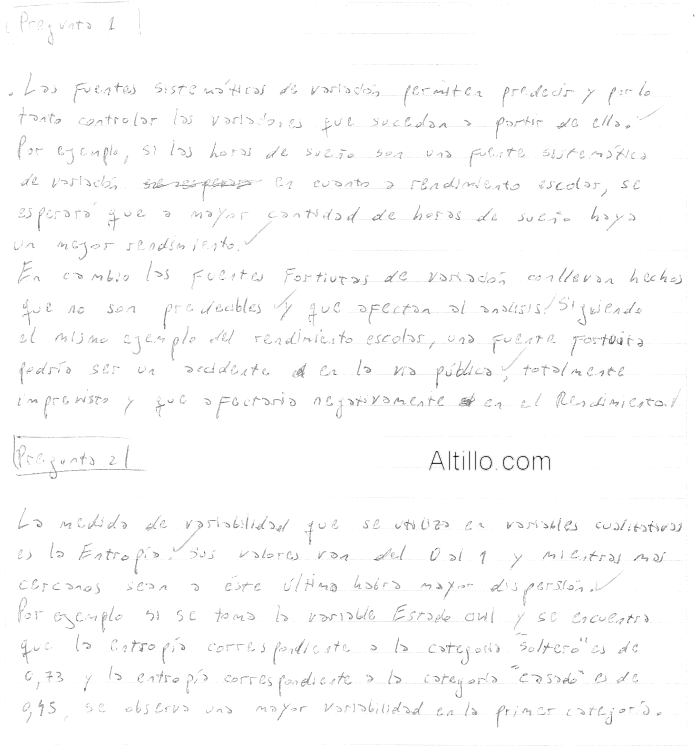 Pregunta 1
. Las Fuentes sistemáticas de variación permiten predecir y por lo
tanto controlar las variaciones que sucedan a partir de ella.
Por ejemplo, si las horas de sueño son una fuente sistemática
de variación se esperara en cuanto a rendimiento escolar, se
esperará que a mayor cantidad de horas de sueño haya
un mejor rendimiento.
En cambio las Fuentes Fortuitas de variación conllevan hechos
que no son predecibles y que afectan al analisis. Siguiendo
el mismo ejemplo del rendimiento escolar, una fuente Fortuita
podría ser un accidente en la via pública, totalmente
imprevisto y que afectaria negativamente en el Rendimiento.
Pregunta 2
Altillo.com
La medida de variabilidad que se utiliza en variables cualitativas
es la Entropía. Sus valores van del 0 al 1 y mientras mas
cercanos sean a éste última habra mayor dispersión.
Por ejemplo si se toma la variable Estado civil y se encuentra
que la entropía correspondiente a la categoria "soltero" es de
0,73 y la entropía correspondiente a la categoria "casado" es de
0,45, se observa una mayor variabilidad en la primer categoría.